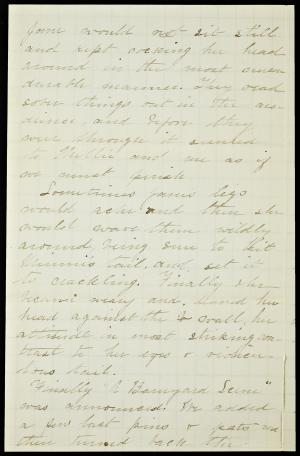 Jane would not sit still
and kept cocking her head
around in the most unen-
durable manner. They read
some things out in the au-
dience, and before they
were through it seemed
to Nellie and me as if
we must perish
Sometimes Janes legs
would ache and then she
would wave them wildly
around, being sure to hit
tail, and set it
to crackling. Finally she
became weary and leaned her
head against the wall, her
attitude in most striking con-
trast to her eyes &
tail.
Finally "A Barnyard Scene"
was announced. We added
a few last pins & pats and
then turned back the